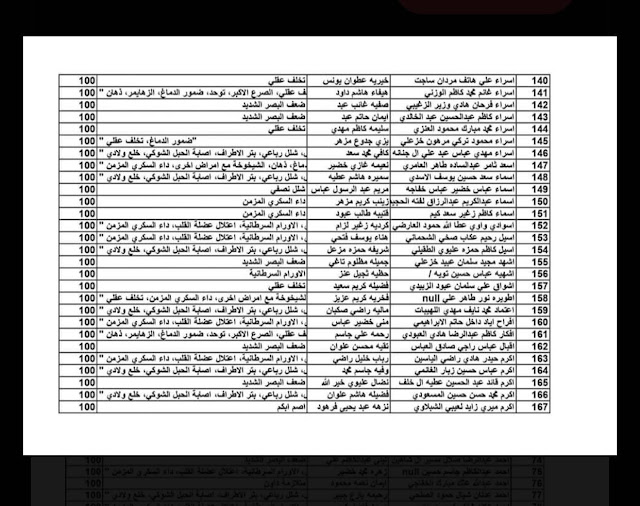 140 اسراء علي هاتف مردان ساجت خيريه عطوان يونس تخلف عقلي 100
141 اسراء غانم محمد كاظم الوزني هيفاء هاشم داود ف عقلي، الصرع الاكبر، توحد، ضمور الدماغ، الزهايمر، ذهان " 100
142 اسراء فرحان هادي وزير الزغيبي صفيه غائب عبد ضعف البصر الشديد 100
143 اسراء كاظم عبدالحسين عبد الخالدي ايمان حاتم عبد ضعف البصر الشديد 100
144 اسراء محمد مبارك محمود العنزي سليمه كاظم مهدي تخلف عقلي 100
145 اسراء محمود تركي مرهون خزعلي يزي جدوع مزهر "ضمور الدماغ، تخلف عقلي " 100
146 اسراء مهدي عباس عبد علي ال جنانه كافي محمد سعد ، شلل رباعي، بتر الاطراف، اصابة الحبل الشوكي، خلع ولادي " 100
147 اسعد ثامر عبدالساده طاهر العامري نعيمه غازي خضير ماغ، ذهان، الشيخوخة مع امراض اخرى، داء السكري المزمن " 100
148 اسماء سعد حسين يوسف الاسدي سميره هاشم عطيه ، شلل رباعي، بتر الاطراف، اصابة الحبل الشوكي، خلع ولادي " 100
149 اسماء عباس خضير عباس خفاجه مريم عبد الرسول عباس شلل نصفي 100
150 اسماء عبدالكريم عبدالرزاق لفته الحجي زينب كريم مزهر داء السكري المزمن 100
151 اسماء كاظم زغير سعد كيم قتيبه طالب عبود داء السكري المزمن 100
152 اسوادي واوي عطا الله حمود العارضي كرديه زغير لزام ، الاورام السرطانية، اعتلال عضلة القلب، داء السكري المزمن " 100
153 اسيل رحيم عكاب صخي الشحماني هناء يوسف فتحي ، الاورام السرطانية، اعتلال عضلة القلب، داء السكري المزمن " 100
154 اسيل كاظم حمزه عليوي الطفيلي شريفه حمزه مزعل ، شلل رباعي، بتر الاطراف، اصابة الحبل الشوكي، خلع ولادي " 100
155 اشهد مجيد سلمان عبيد خزعلي جميله مظلوم تاغي ضعف البصر الشديد 100
156 اشهيه عباس حسين تويه / حظيه ثجيل عنز الاورام السرطانية 100
157 اشواق علي سلمان عبود الزبيدي فضيله كريم سعيد تخلف عقلي 100
158 اطويره نور طاهر علي null فخريه كريم عزيز لشيخوخة مع امراض اخرى، داء السكري المزمن، تخلف عقلي " 100
159 اعتماد محمد نايف مهدي اللهيبات ماليه راضي صكبان ، شلل رباعي، بتر الاطراف، اصابة الحبل الشوكي، خلع ولادي " 100
160 افراح اياد داخل حاتم الابراهيمي منى خضير عباس ، الاورام السرطانية، اعتلال عضلة القلب، داء السكري المزمن " 100
161 افكار كاظم عبدالرضا هادي العبودي رحمه علي جاسم ف عقلي، الصرع الاكبر، توحد، ضمور الدماغ، الزهايمر، ذهان " 100
162 اقبال عباس راجي صادق العباس تقيه محسن علوان ضعف البصر الشديد 100
163 اكرم حيدر هادي راضي الياسين رباب خليل راضي ، الاورام السرطانية، اعتلال عضلة القلب، داء السكري المزمن " 100
164 اكرم عباس حسين زبار الغانمي وفيه جاسم محمد ، شلل رباعي، بتر الاطراف، اصابة الحبل الشوكي، خلع ولادي " 100
165 اكرم قائد عبد الحسين عطيه ال خلف نضال عليوي خير الله ضعف البصر الشديد 100
166 اكرم محمد حسن حسين المسعودي فضيله هاشم علوان ، شلل رباعي، بتر الاطراف، اصابة الحبل الشوكي، خلع ولادي " 100
167 اكرم ميري زايد لعيبي الشبلاوي نزهه عبد يحيى فرهود اصم ابكم 100